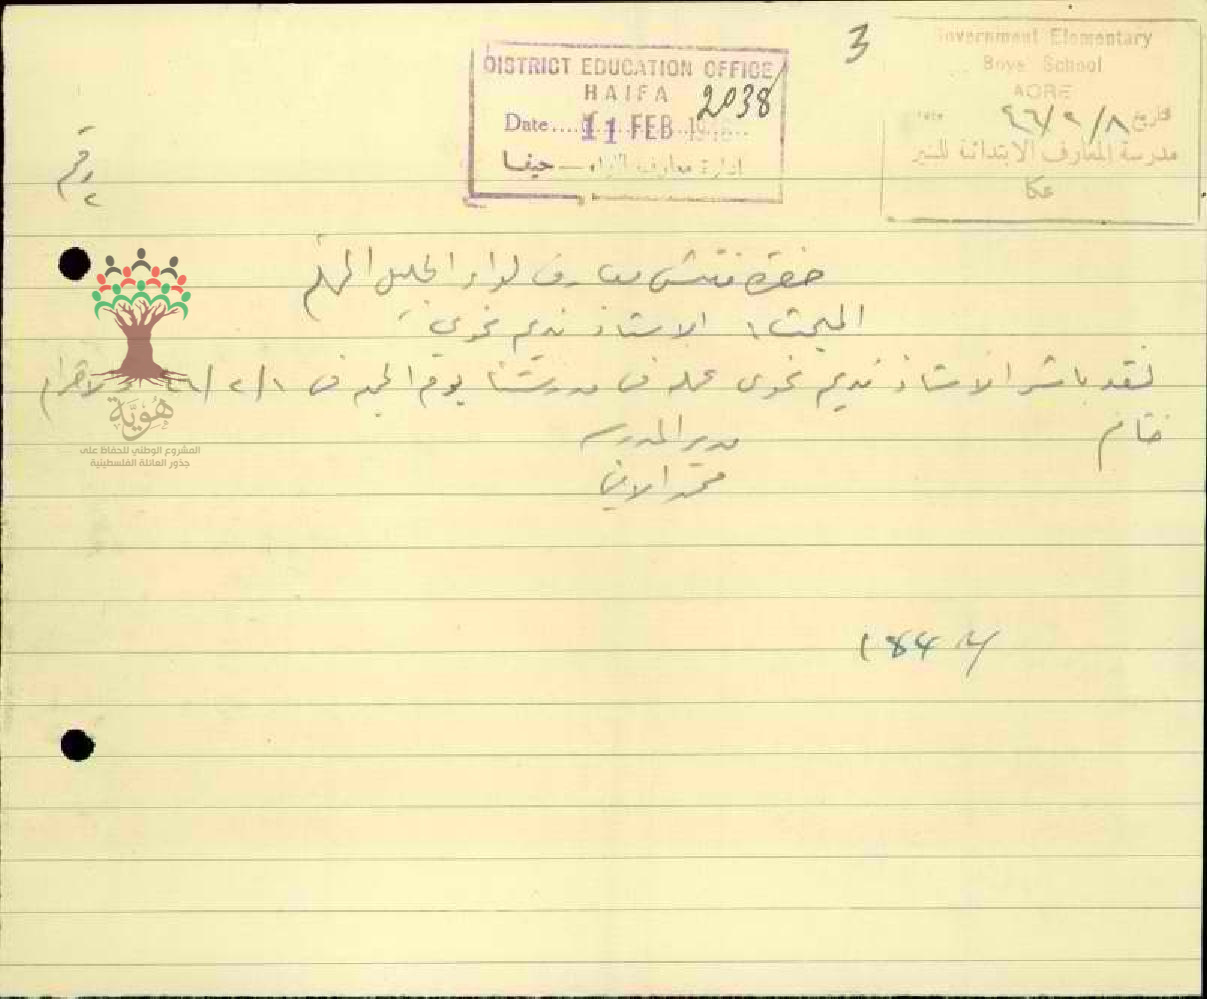 3
Government Elementary
Boys School
ACRE
Date ٤٦/٢/٨ تاريخ
مدرسة المعارف الابتدائية للبنين
عكا
DISTRICT EDUCATION OFFICE
HAIFA
2038
Date.... 11 FEB 19
ادارة معارف اللواء — حيفا
حضرة مفتش معارف لواء الجليل المحترم
المبحث: الاستاذ نديم نحوي
لقد باشر الاستاذ نديم نحوي عمله في مدرستنا يوم الجمعة في ٤٦/٢/١
مدير المدرسة
محمد الامين
هُوِيَّة
المشروع الوطني للحفاظ على
جذور العائلة الفلسطينية